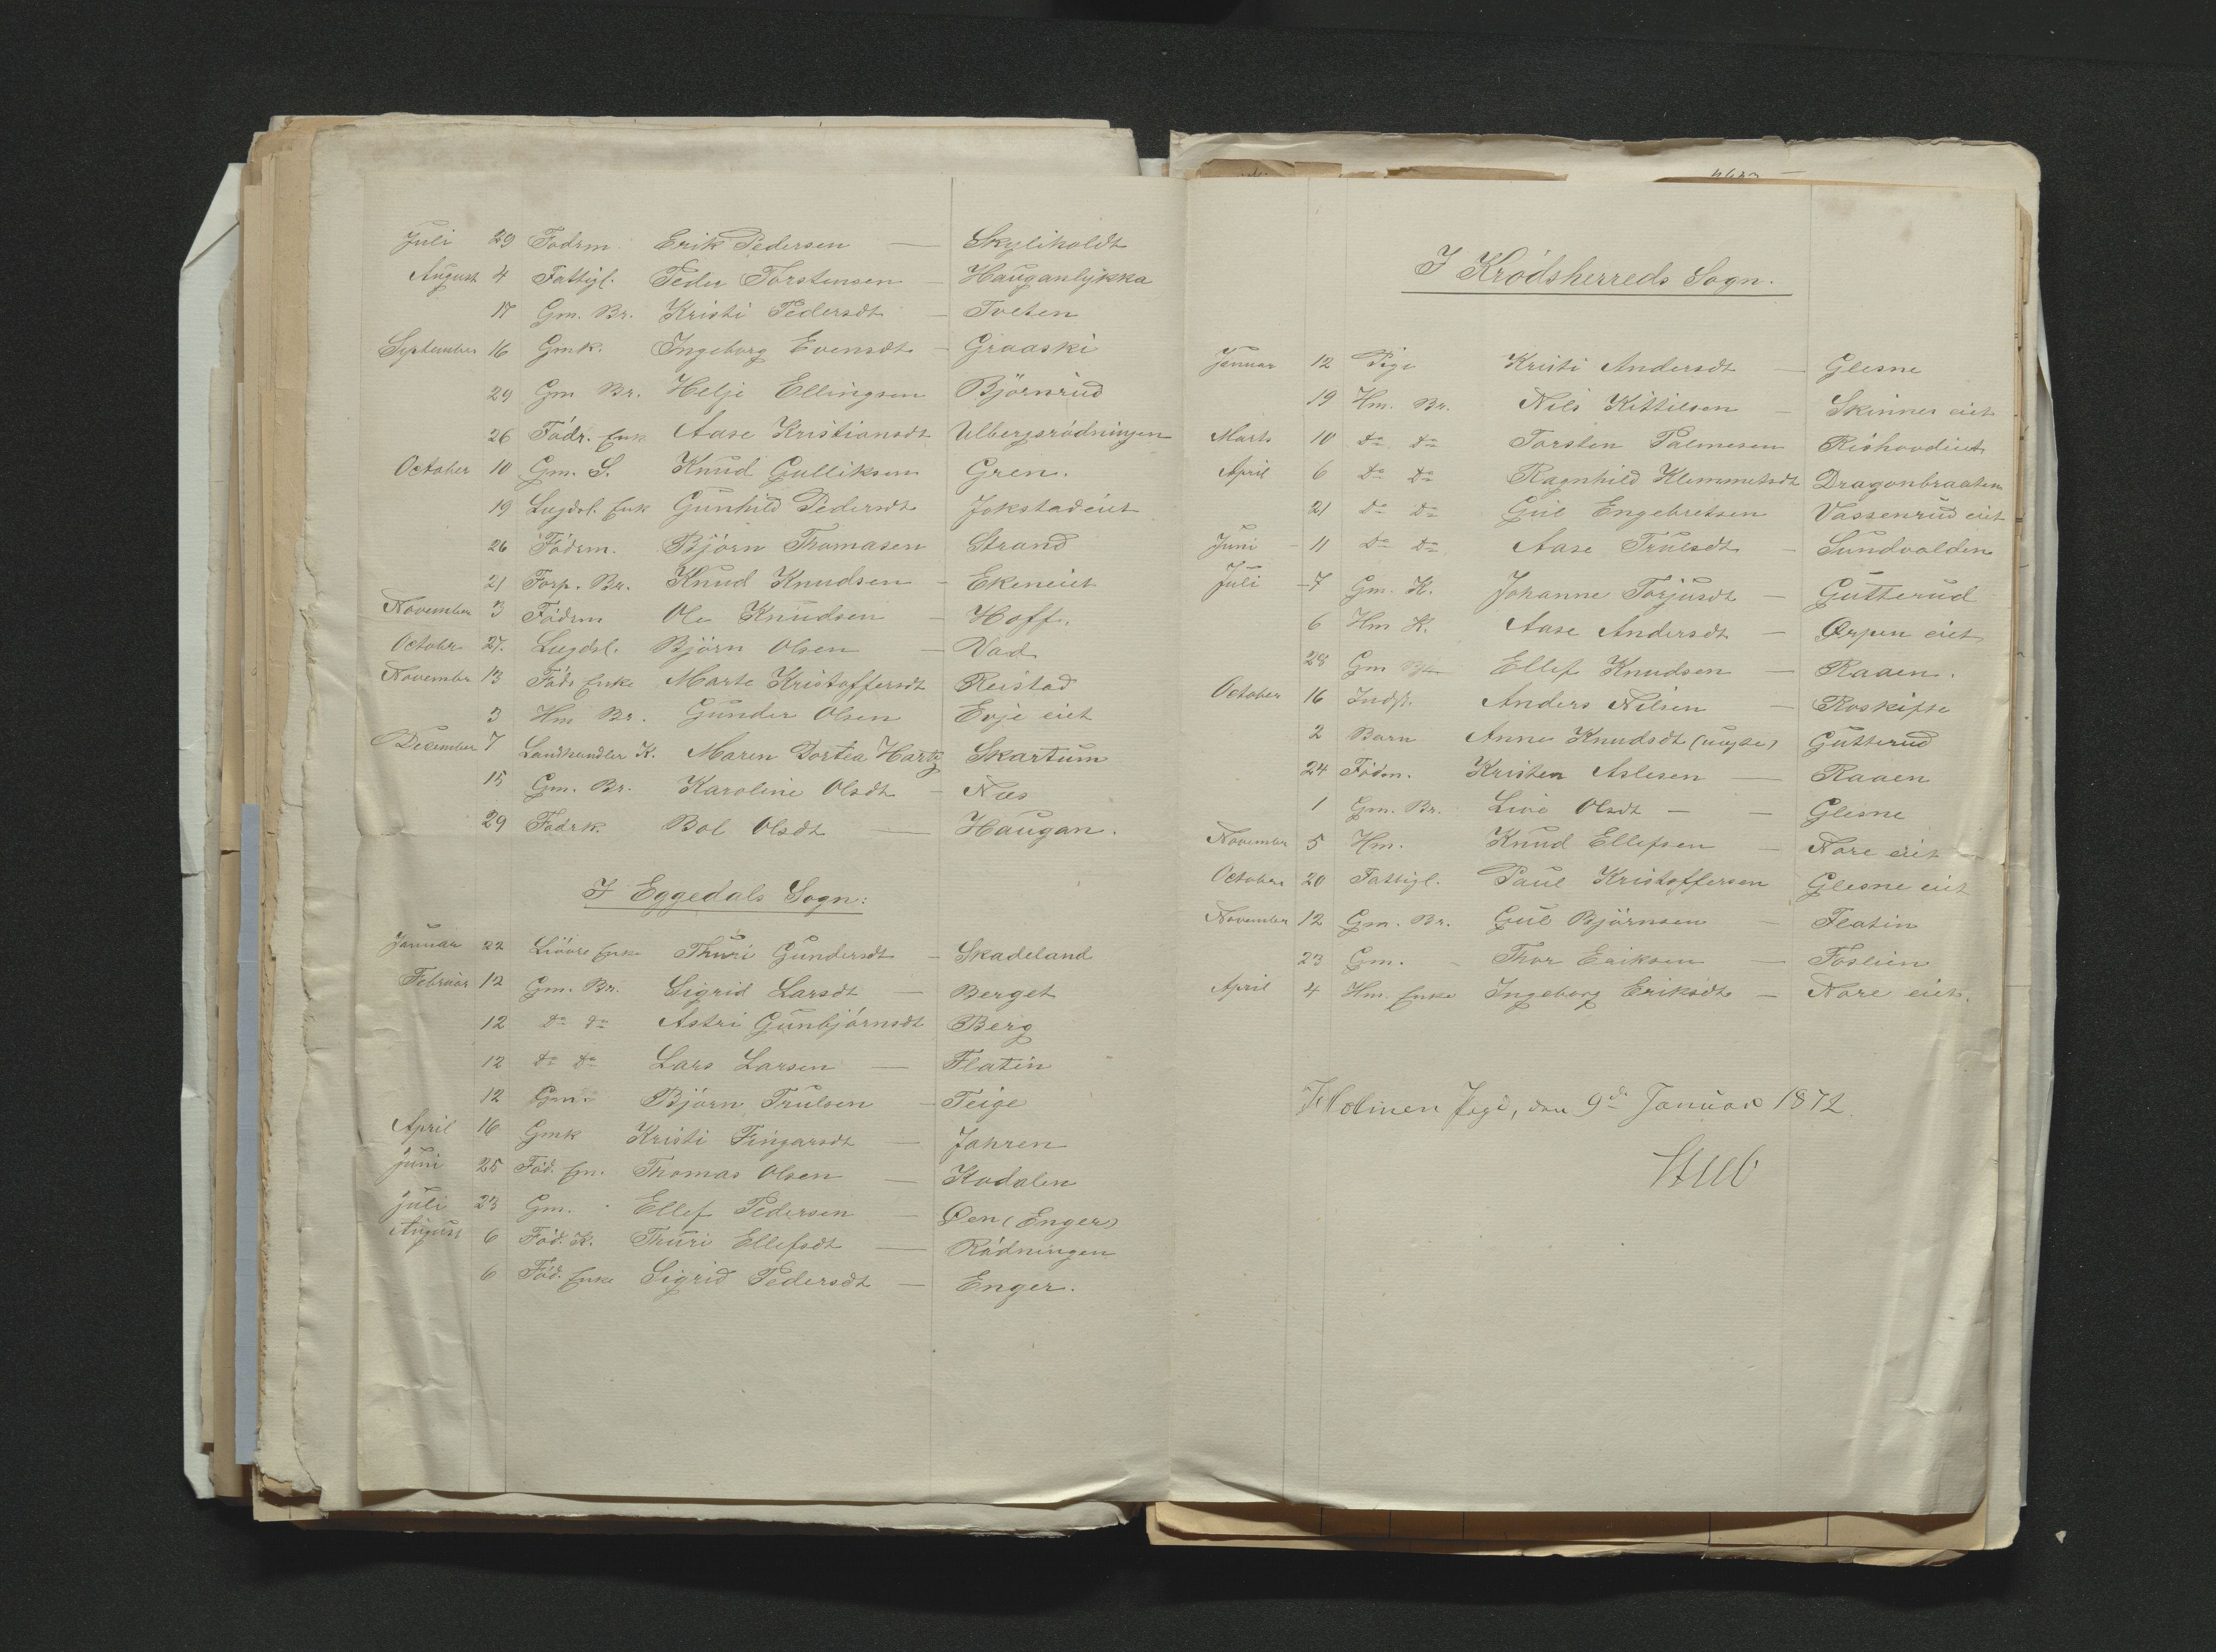 Juli 29 Födrm Erik Pedersen — Skyliholdt
August 4 Fattigl. Peder Torstensen — Hauganlykka
17 Gm. Br. Kristi Pedersdt — Tveten
September 16 Gmk. Ingeborg Evensdt — Graaski
29 Gm Br. Helje Ellingsen Björnrud
26 Födr. Enk Aase Kristiansdt Ulbergsrödningen
October 10 Gm. S. Knud Gulliksen Gren.
19 Lægdsl. Enk Gunhild Pedersdt Jokstadeiet
26 Födrm. Björn Tromasen Strand
21 Forp. Br. Knud Knudsen — Ekeneiet
November 3 Födrm Ole Knudsen — Hoff.
October 27. Lægdsl. Björn Olsen — Vad
Novembr 13 Födr Enke Marte Kristoffersdt Reistad
3 Hm Br. Gunder Olsen Evje eiet
December 7 Landhandler K. Maren Dortea Hartz Skartum
15 Gm. Br. Karoline Olsdt — Næs
29 Födrk. Bol Olsdt — Haugan.
I Eggedals Sogn:
Januar 22 Enke Thuri Gundersdt — Skadeland
Februar 12 Gm. Br. Sigrid Larsdt — Berget
12 Do do Astri Gunbjörnsdt Berg
12 Do Do Lars Larsen — Flatin
12 Gm. Björn Trulsen — Teige
April 16 Gmk Kristi Fingarsdt — Jahren
Juni 25 Föd. Em. Thomas Olsen — Kodalen
Juli 23 Gm. Ellef Pedersen — Öen (Enger)
August 6 Föd. K. Thuri Ellefsdt — Rödningen
6 Föd. Enke Sigrid Pedersdt — Enger.
I Krödsherreds Sogn.
Januar 12 Pige Kristi Andersdt — Glesne
19 Hm. Br. Nils Kittilsen — Skinnes eiet
Marts 10 Do Do Torsten Palmesen Rishovdeiet
April 6 Do Do Ragnhild Klemmetsdt Dragonbraaten
21 Do Do Gul Engebretsen Vassenrud eiet
Juni 11 Do Do Aase Trulsdt — Sundvolden
Juli 7 Gm. K. Johanne Torjusdt — Gutterud
6 Hm K. Aase Andersdt — Ørpen eiet
28 Gm Ellef Knudsen — Raaen.
October 16 Inds. Anders Nilsen — Roskifte
2 Barn Anne Knudsdt (uægte) Gutterud
24 Födm. Kristen Aslesen — Raaen
1 Gm. Br. Live Olsdt — Glesne
Novembr 5 Hm. Knud Ellefsen — Nore eiet
October 20 Fattigl. Paul Kristoffersen Glesne eiet
November 12 Gm. Br. Gul Björnsen — Flatin
23 Gm. Thor Eriksen — Foslien
April 4 Hm. Enke Ingeborg Eriksdt — Nore eiet.
Holmen Sigd, den 9de Januar 1872.